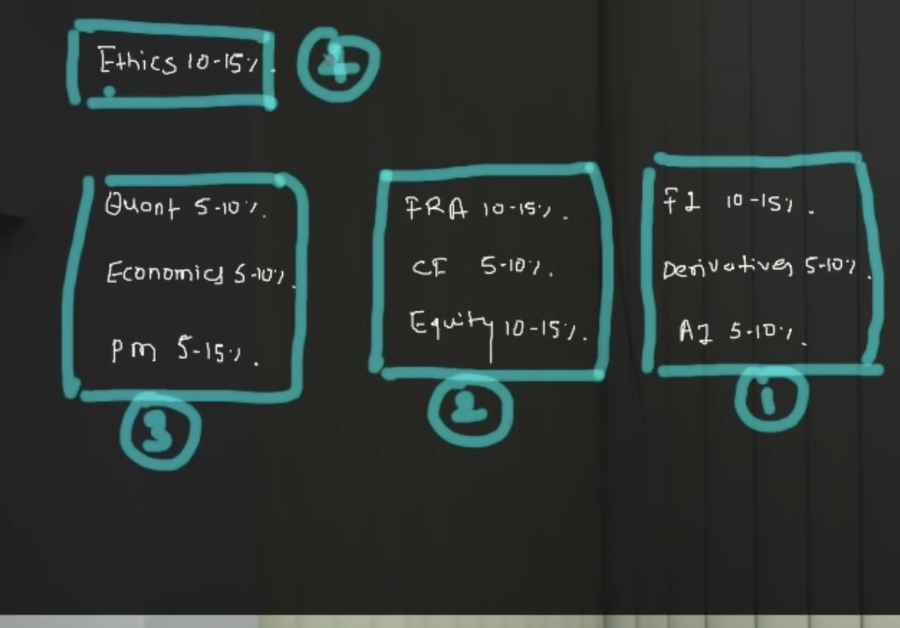 Ethics 10-15%.
4
Quant 5-10%.
Economics 5-10%.
PM 5-15%.
3
FRA 10-15%.
CF 5-10%.
Equity 10-15%.
2
FI 10-15%.
Derivatives 5-10%.
AI 5-10%.
1